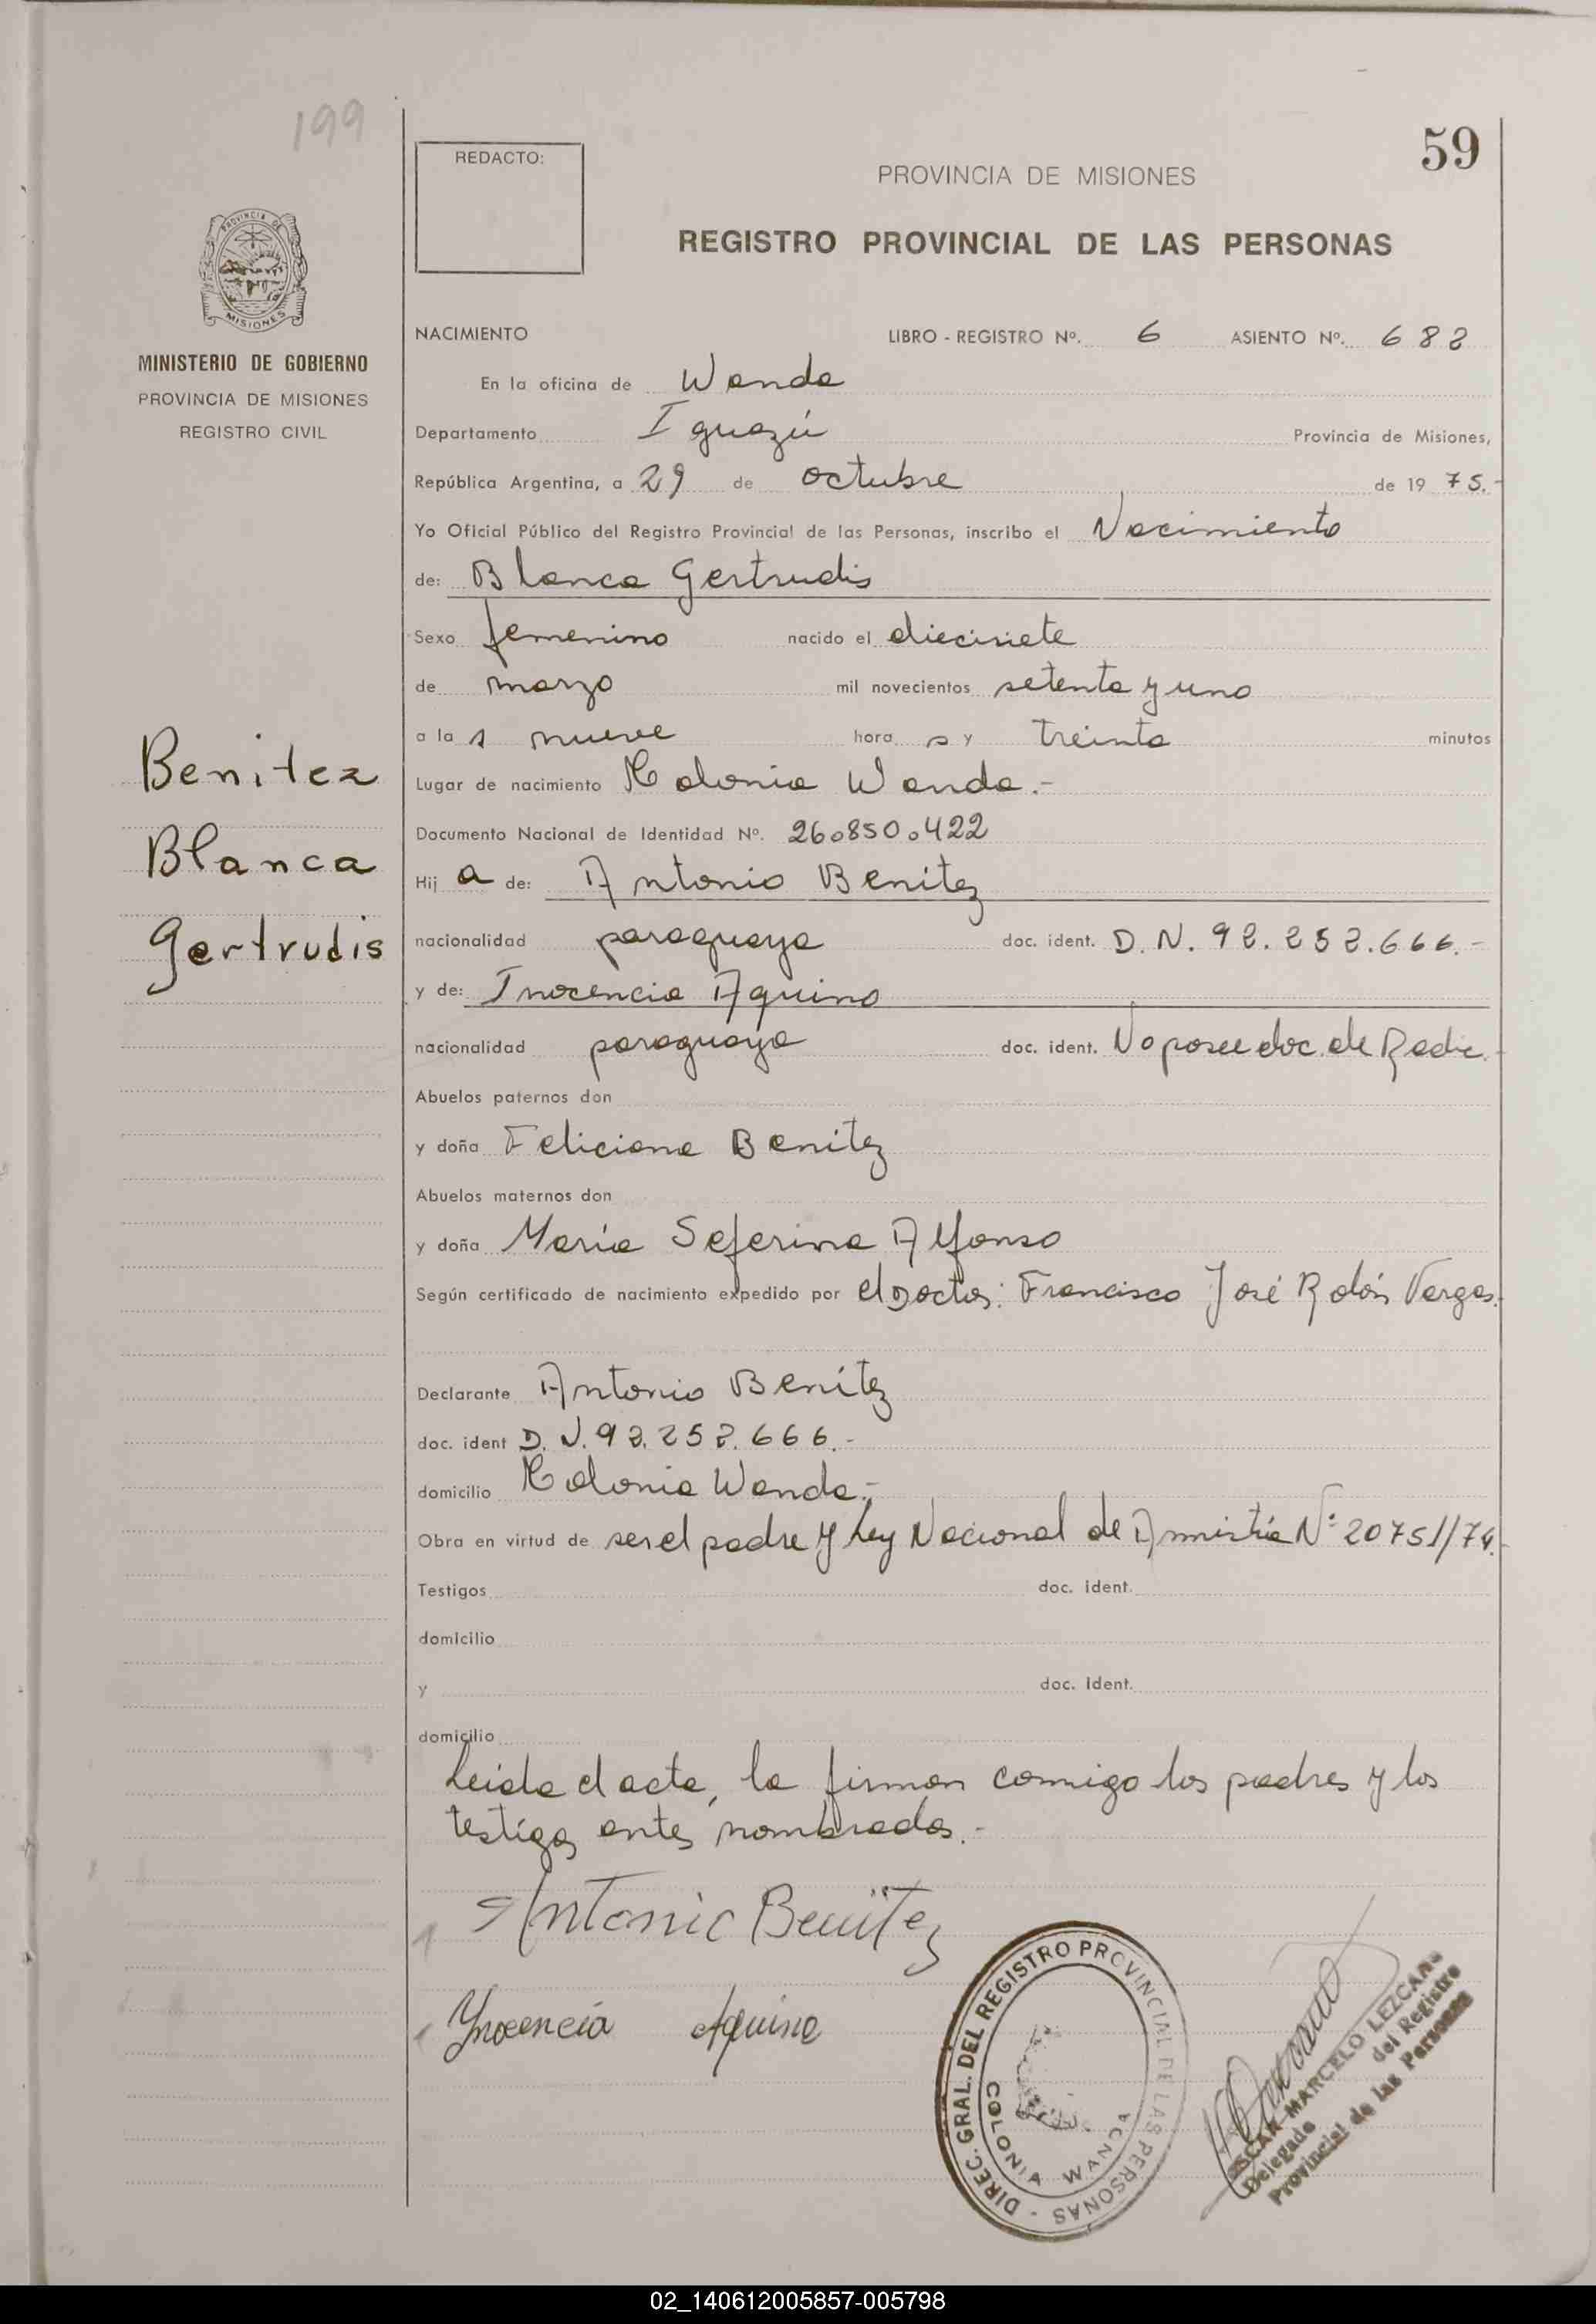 199
59
REDACTO:
PROVINCIA DE MISIONES
REGISTRO PROVINCIAL DE LAS PERSONAS
PROVINCIA DE
MISIONES
MINISTERIO DE GOBIERNO
PROVINCIA DE MISIONES
REGISTRO CIVIL
NACIMIENTO LIBRO - REGISTRO Nº. 6 ASIENTO Nº. 682
En la oficina de Wanda
Departamento Iguazú Provincia de Misiones,
República Argentina, a 29 de octubre de 19 75.-
Yo Oficial Público del Registro Provincial de las Personas, inscribo el Nacimiento
de: Blanca Gertrudis
Sexo femenino nacido el diecisiete
de marzo mil novecientos setenta y uno
a la s nueve hora s y treinta minutos
Benitez
Blanca
Gertrudis
Lugar de nacimiento Colonia Wanda.-
Documento Nacional de Identidad Nº. 26.850.422
Hij a de: Antonio Benitez
nacionalidad paraguaya doc. ident. D.N. 92.252.666.-
y de: Inocencia Aquino
nacionalidad paraguaya doc. ident. No posee doc. de Radic.-
Abuelos paternos don
y doña Feliciana Benitez
Abuelos maternos don
y doña María Seferina Alfonso
Según certificado de nacimiento expedido por el Doctor: Francisco José Rolón Vargas.
Declarante Antonio Benítez
doc. ident D.N. 92.252.666.-
domicilio Colonia Wanda.-
Obra en virtud de ser el padre y Ley Nacional de Amnistía Nº 20751/74.
Testigos doc. ident.
domicilio
y doc. ident.
domicilio
Leida el acta, la firman conmigo los padres y los
testigos antes nombrados.-
Antonio Benitez
Ynocencia Aquino
DIREC. GRAL. DEL REGISTRO PROVINCIAL DE LAS PERSONAS -
COLONIA WANDA
OSCAR MARCELO LEZCANO
Delegado del Registro
Provincial de las Personas
02_140612005857-005798